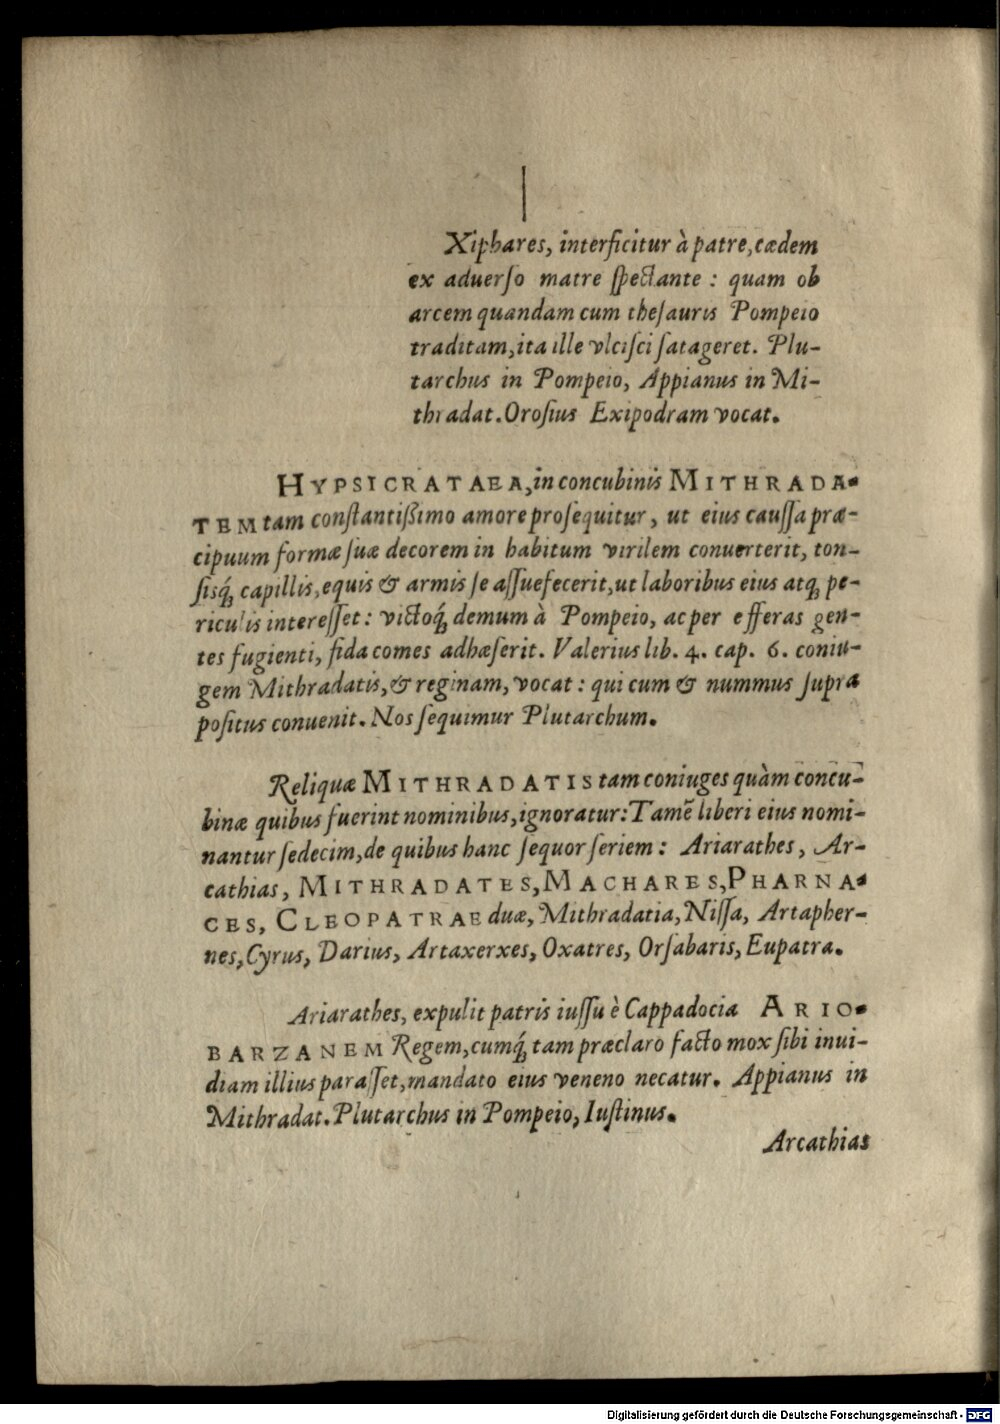 Xiphares, interficitur à patre, cædem
ex aduerſo matre ſpectante : quam ob
arcem quandam cum theſauris Pompeio
traditam, ita ille vlciſci ſatageret. Plu-
tarchus in Pompeio, Appianus in Mi-
thradat. Oroſius Exipodram vocat.
HYPSICRATAEA, in concubinis MITHRADA-
TEM tam conſtantißimo amore proſequitur, ut eius cauſſa præ-
cipuum formæ ſuæ decorem in habitum virilem conuerterit, ton-
ſisq́; capillis, equis & armis ſe aſſuefecerit, ut laboribus eius atq; pe-
riculis intereſſet : victoq́; demum à Pompeio, ac per efferas gen-
tes fugienti, fida comes adhæſerit. Valerius lib. 4. cap. 6. coniu-
gem Mithradatis, & reginam, vocat : qui cum & nummus ſupra
poſitus conuenit. Nos ſequimur Plutarchum.
Reliquæ MITHRADATIS tam coniuges quàm concu-
binæ quibus fuerint nominibus, ignoratur: Tamē liberi eius nomi-
nantur ſedecim, de quibus hanc ſequor ſeriem : Ariarathes, Ar-
cathias, MITHRADATES, MACHARES, PHARNA-
CES, CLEOPATRAE duæ, Mithradatia, Niſſa, Artapher-
nes, Cyrus, Darius, Artaxerxes, Oxatres, Orſabaris, Eupatra.
Ariarathes, expulit patris iuſſu è Cappadocia ARIO-
BARZANEM Regem, cumq́; tam præclaro facto mox ſibi inui-
diam illius paraſſet, mandato eius veneno necatur. Appianus in
Mithradat. Plutarchus in Pompeio, Iuſtinus.
Arcathias
Digitalisierung gefördert durch die Deutsche Forschungsgemeinschaft - DFG